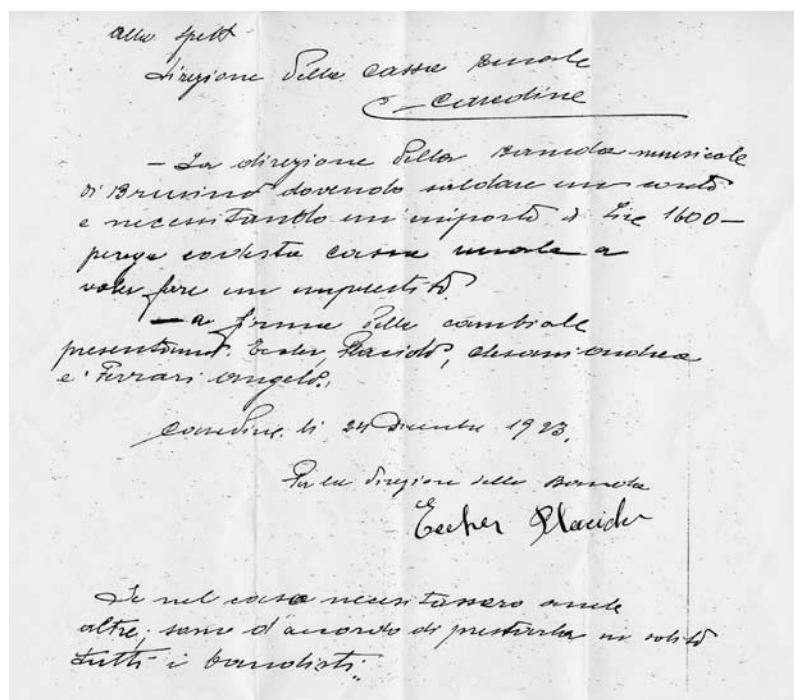 Alla Spett.
Direzione della Cassa Rurale
Cavedine
— La direzione della Banda musicale
di Brusino dovendo saldare un conto
e necessitando un importo di Lire 1600—
prega codesta cassa rurale a
voler fare un imprestito.
— a firma delle cambiali
presentiamo: Eccher Placido, Chesani Andrea
e Ferrari Angelo.
Cavedine, li 24 Dicembre 1923.
Per la direzione della Banda
Eccher Placido
Se nel caso necessitassero anche
altre, sono d'accordo di prestarla in solido
tutti i bandisti.